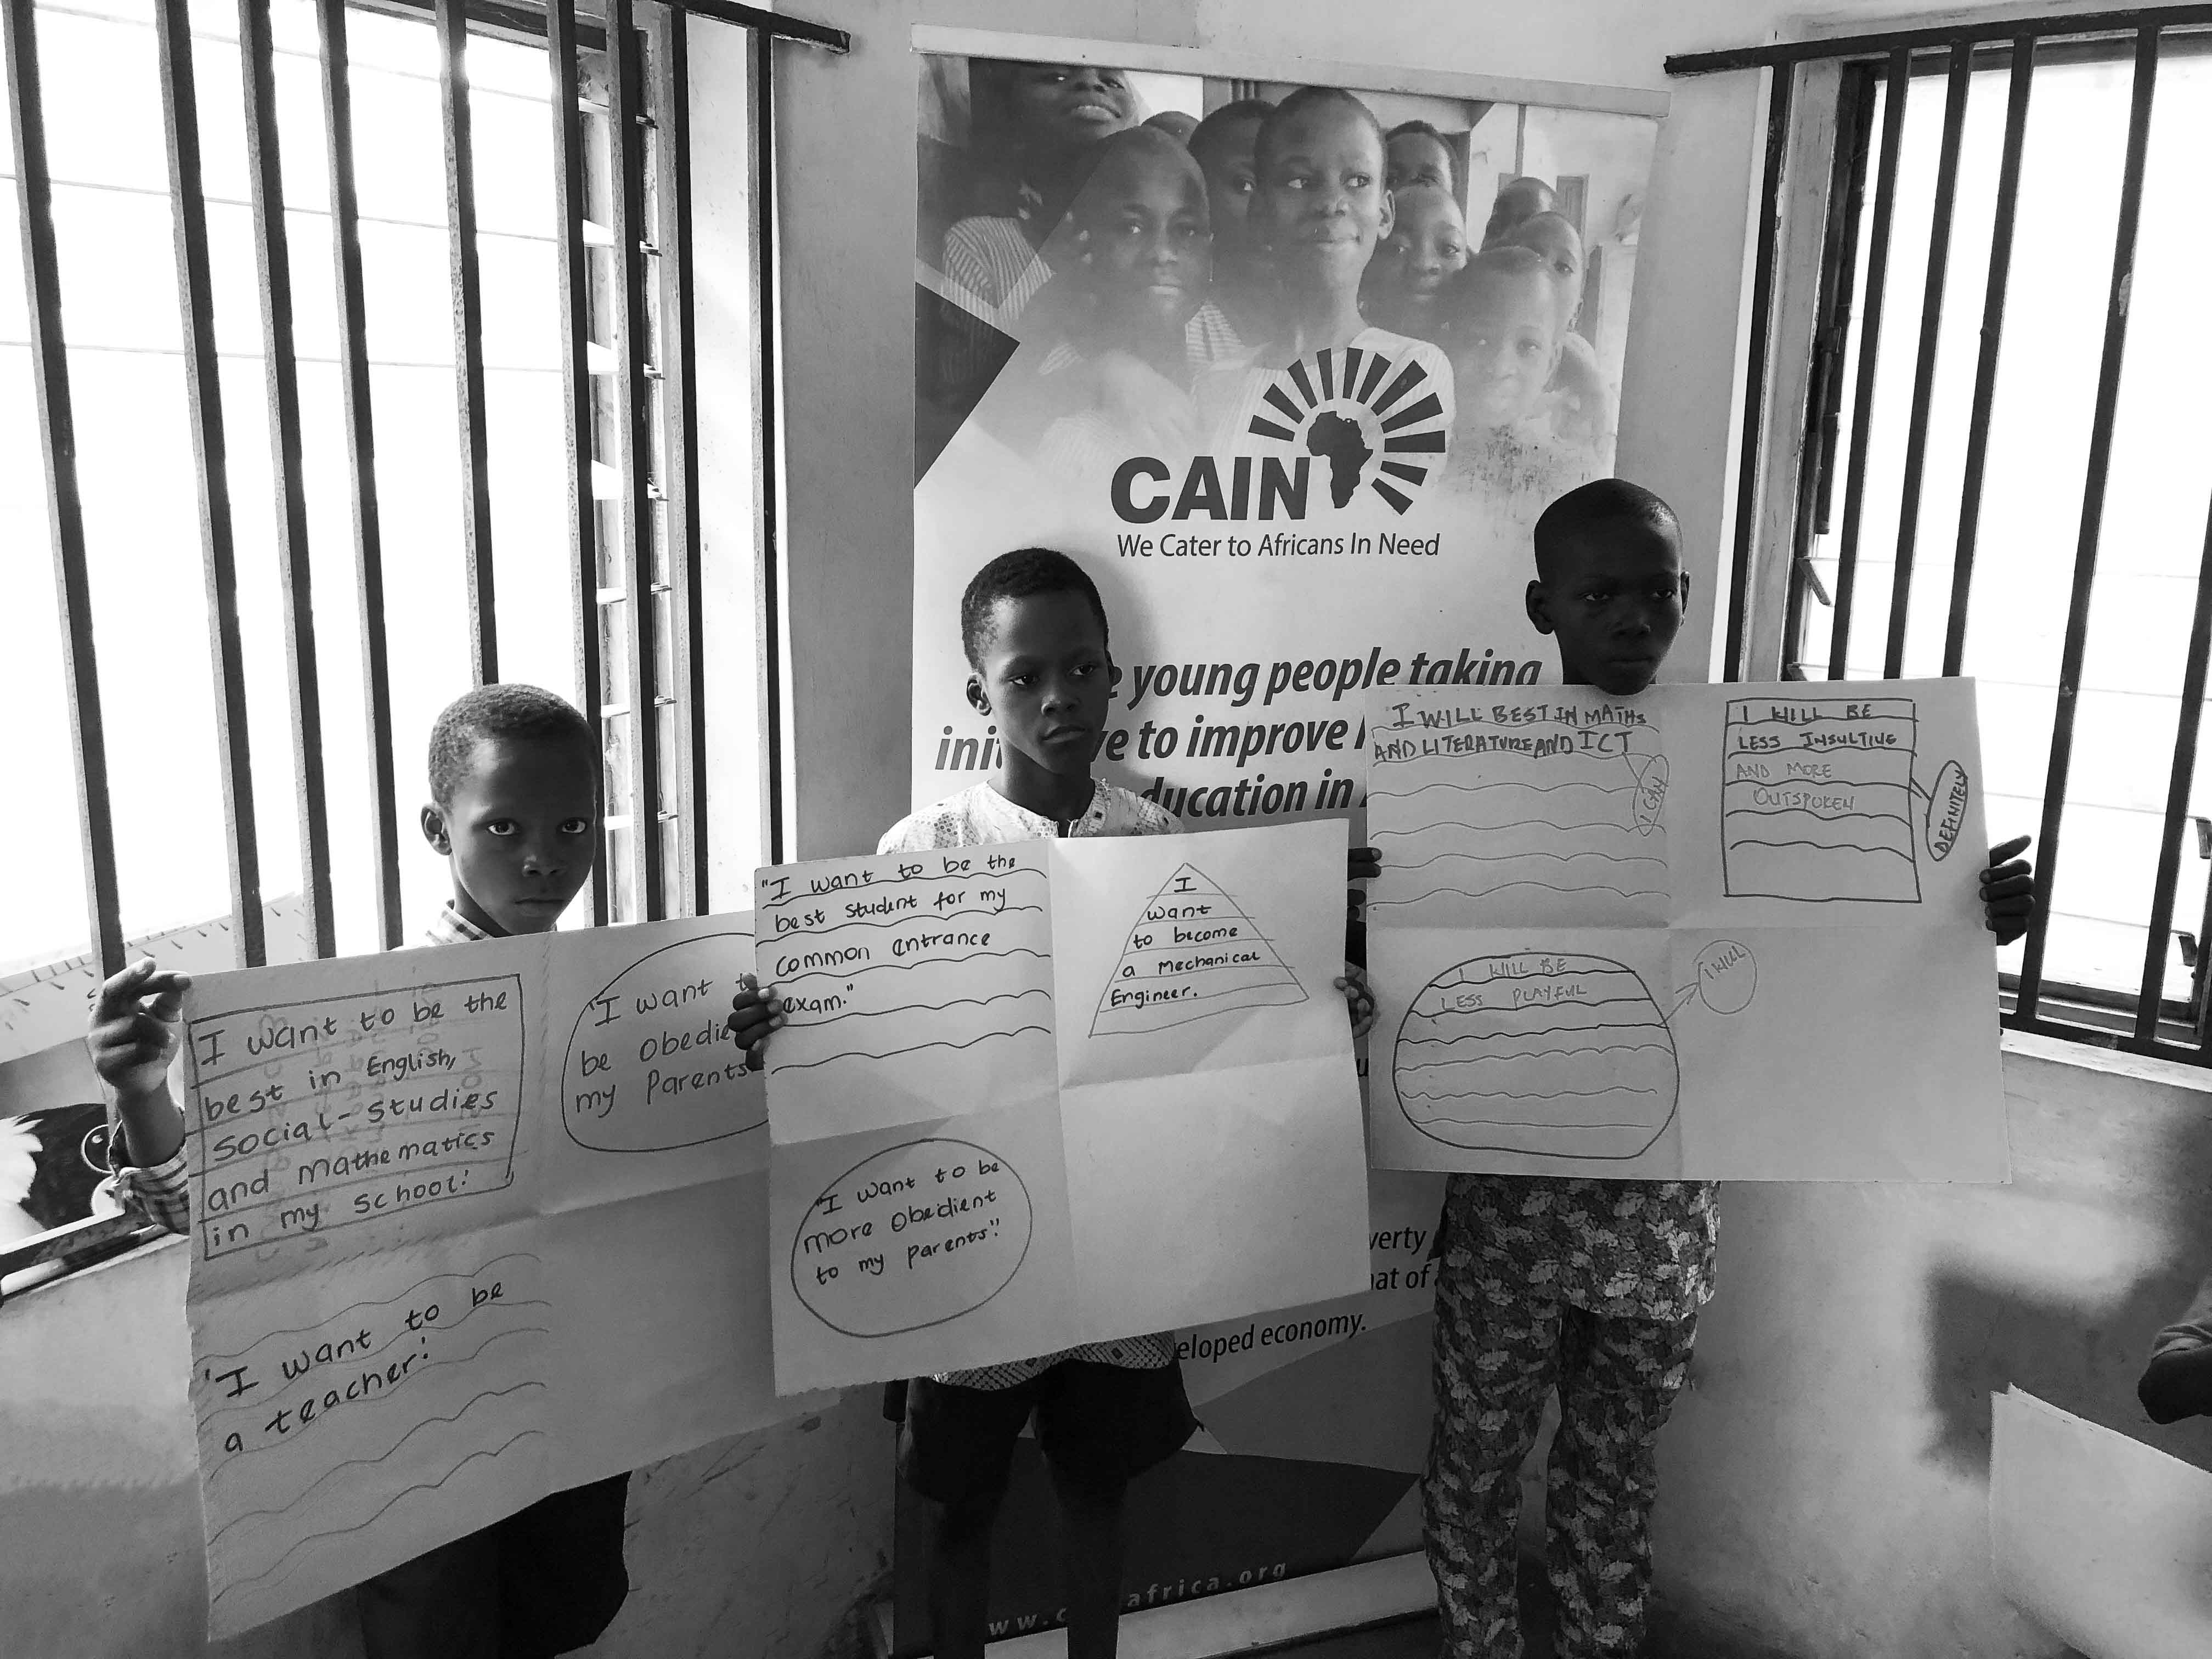 CAIN
We Cater to Africans In Need
young people taking
to improve
ducation in
verty
hat of
eloped economy.
africa.org
I want to be the
best in English,
Social-Studies
and Mathematics
in my School.'
"I want
be Obedie
my Parents
'I want to be
a teacher.'
"I want to be the
best student for my
common entrance
exam."
I
want
to become
a Mechanical
Engineer.
"I want to be
more Obedient
to my parents."
I WILL BEST IN MATHS
AND LITERATURE AND ICT
I CAN
I WILL BE
LESS INSULTIVE
AND MORE
OUTSPOKEN
DEFINITELY
I WILL BE
LESS PLAYFUL
I WILL